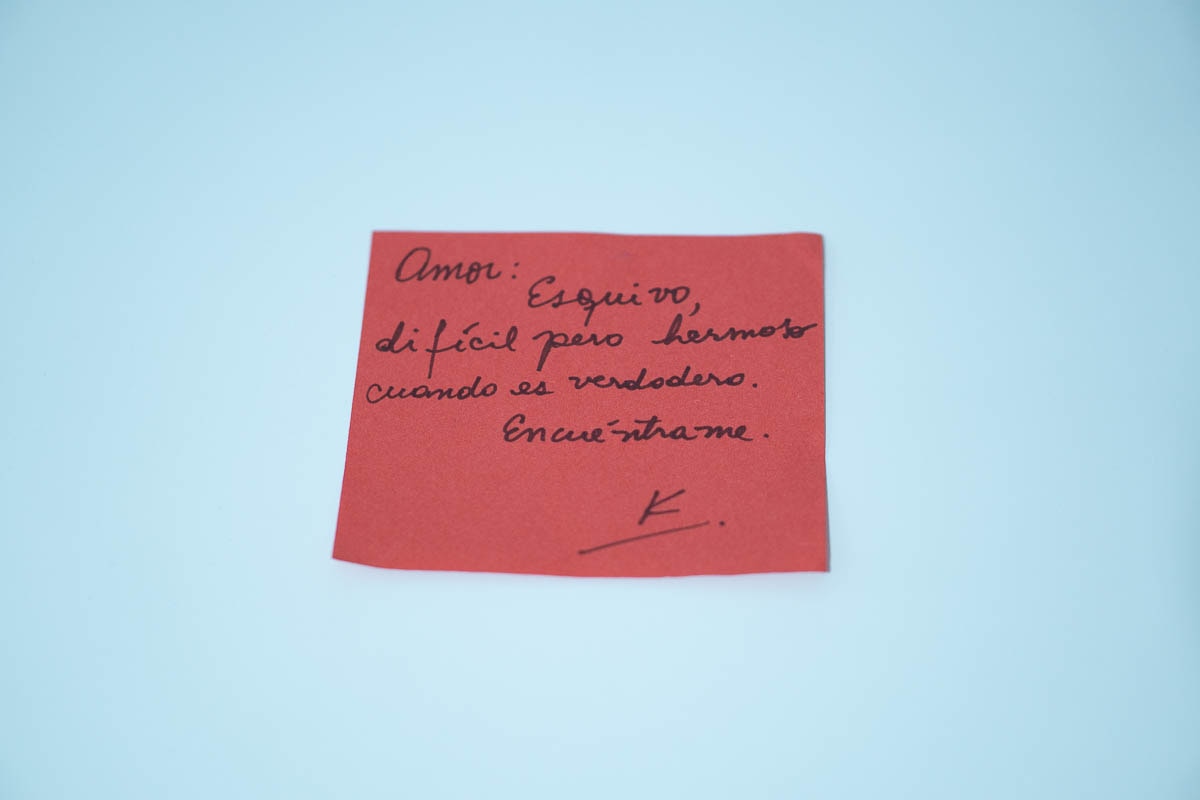 Amor:
Esquivo,
difícil pero hermoso
cuando es verdadero.
Encuéntrame.
K.